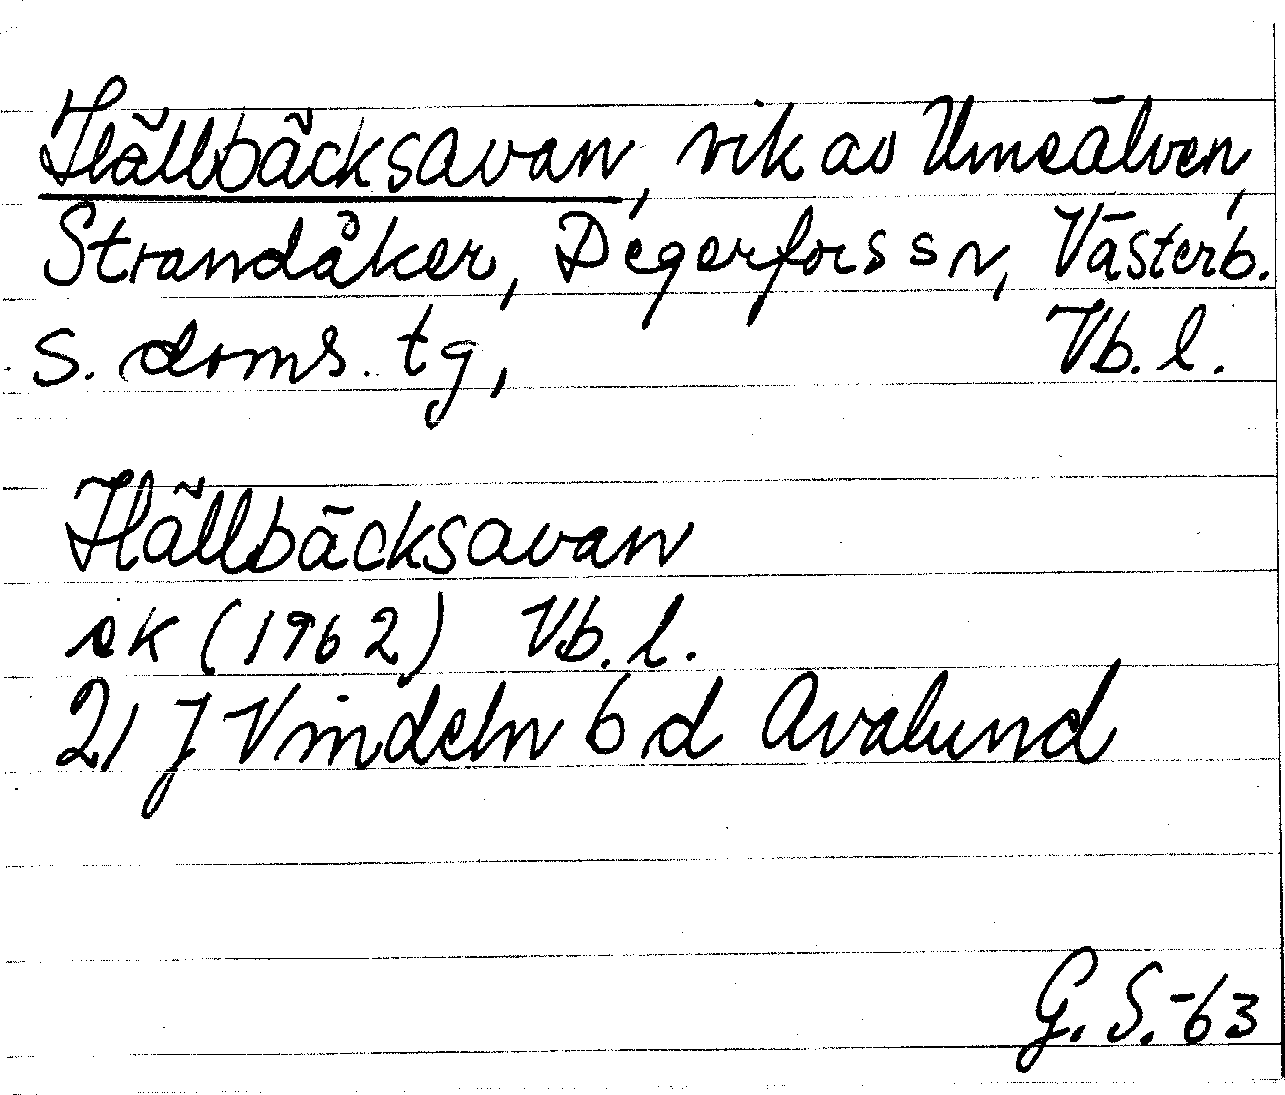 Hällbäcksavan, vik av Umeälven,
Strandåker, Degerfors sn, Västerb.
s. doms. tg, Vb. l.
Hällbäcksavan
ek (1962) Vb. l.
21 J Vindeln 6 d Avalund
G. S. -63